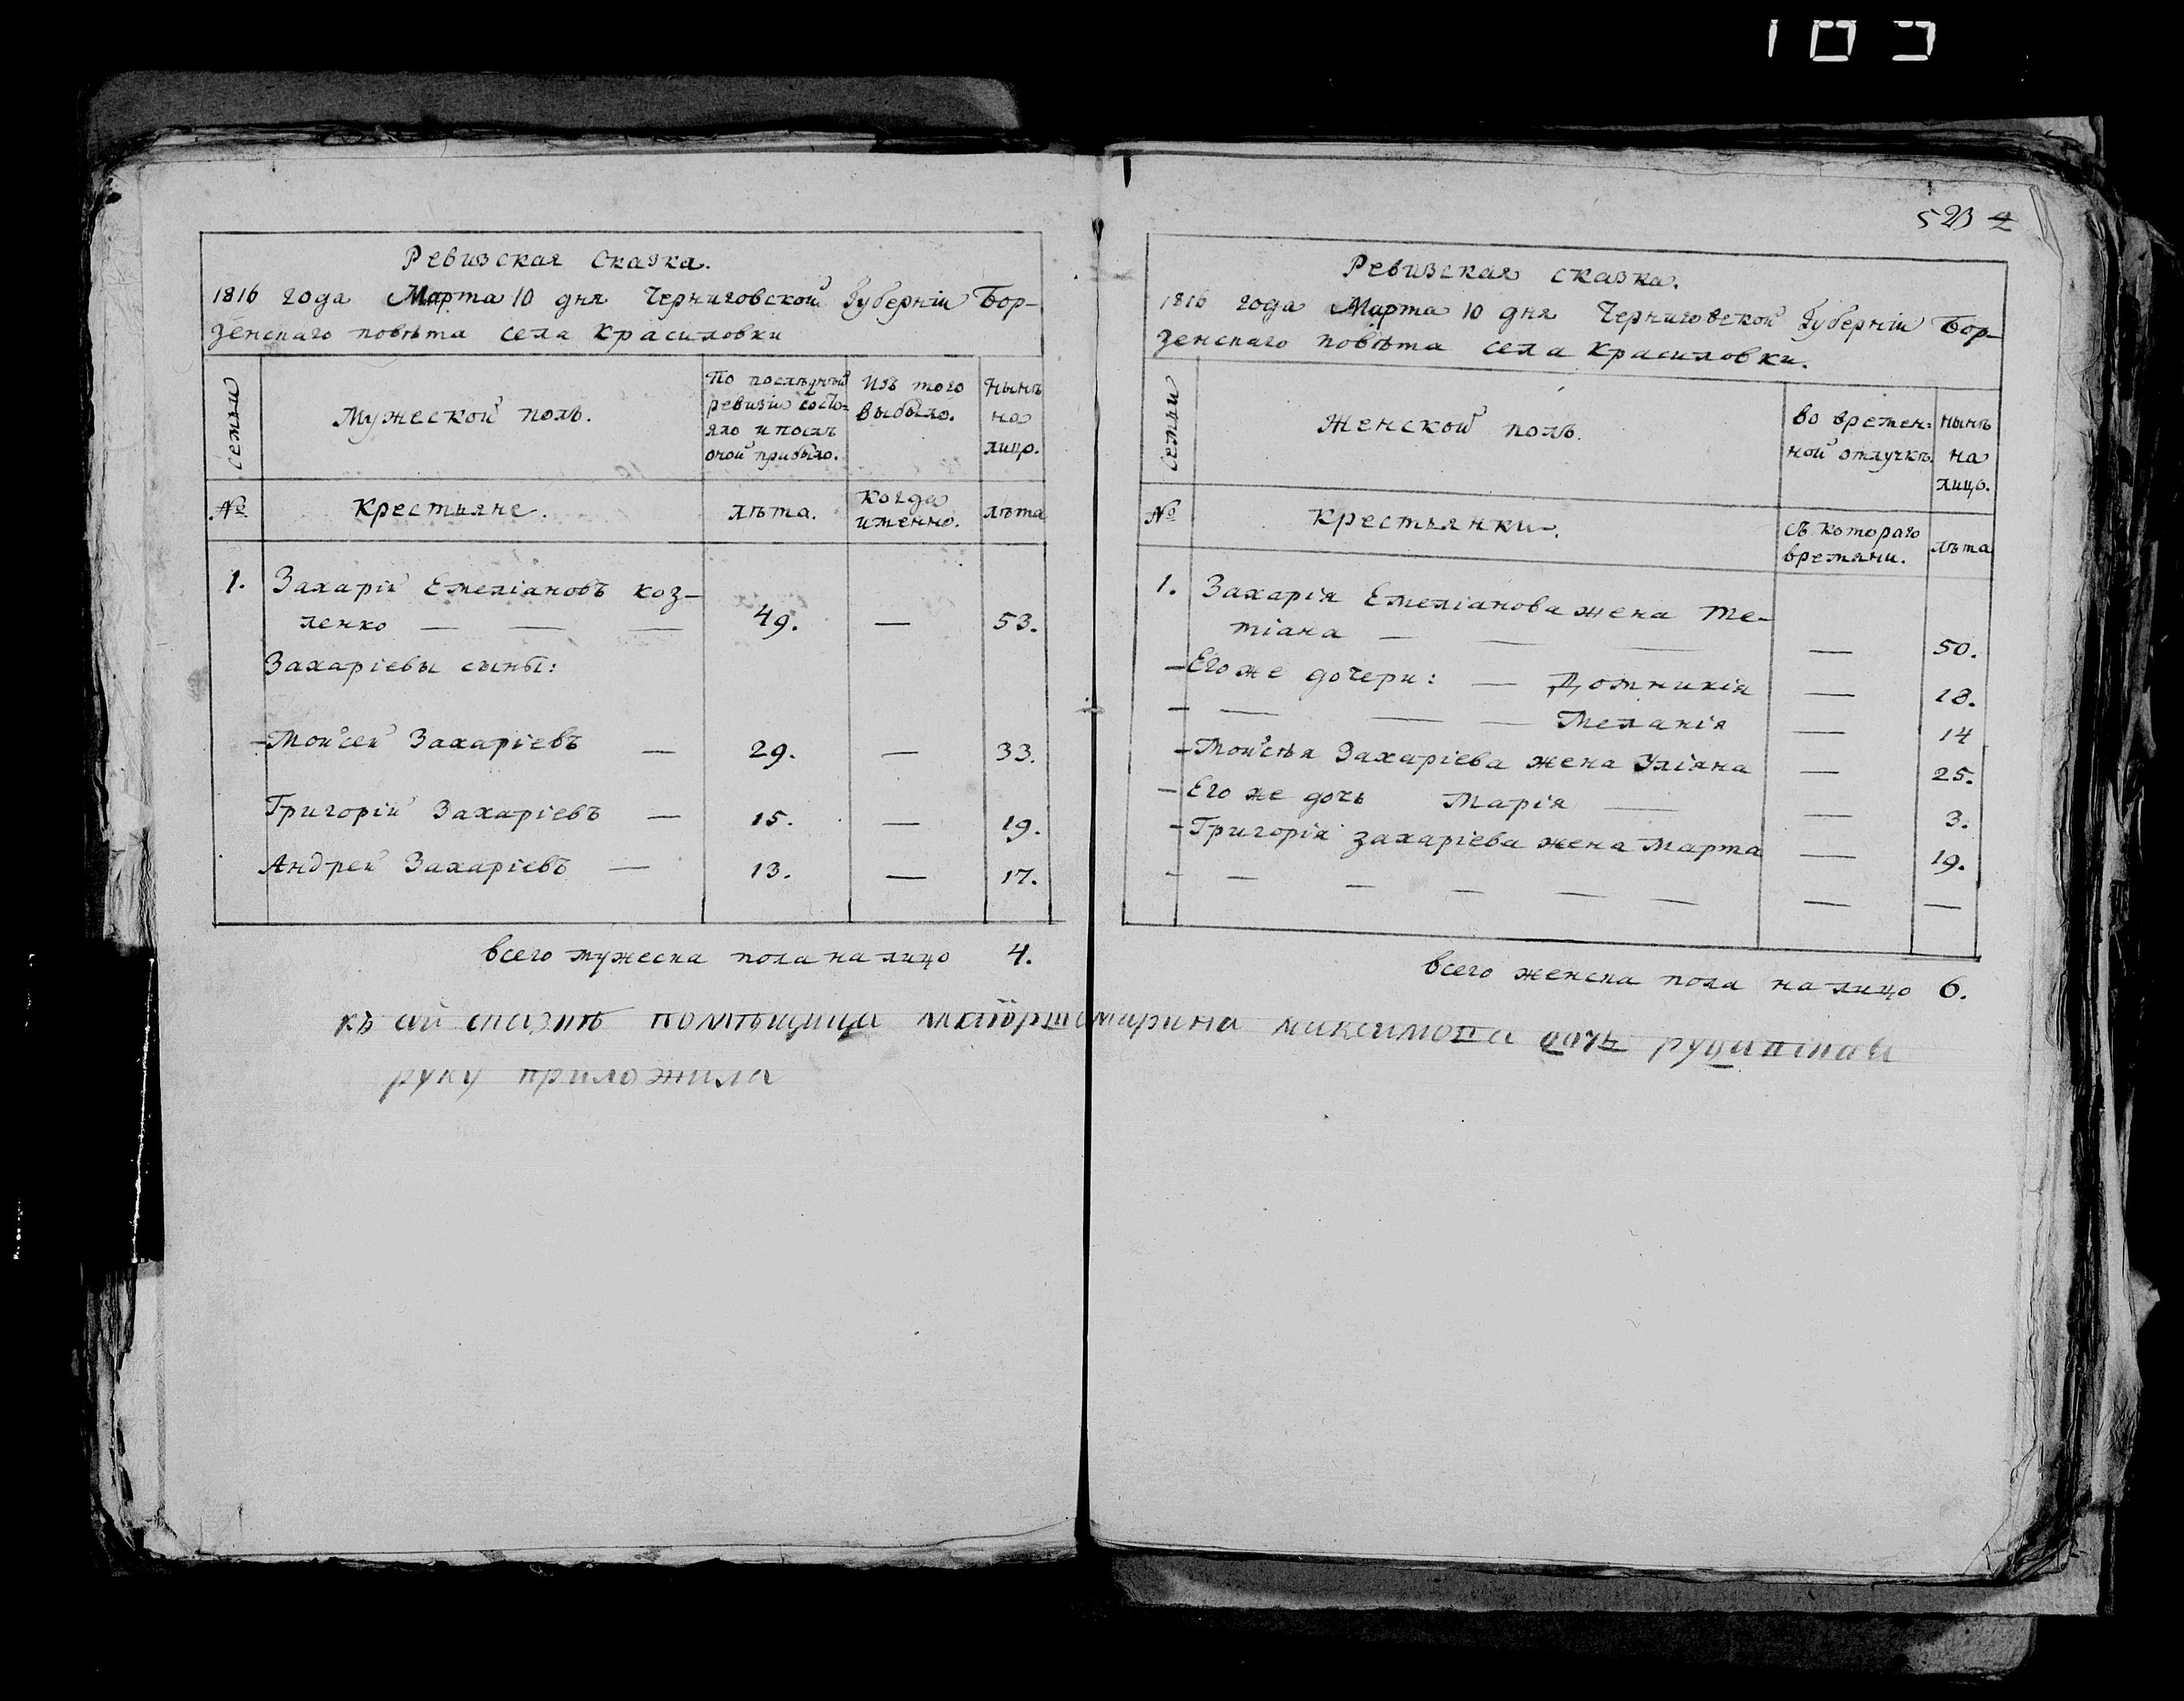 105
523
Ревизская Сказка.
1816 года Марта 10 дня Черниговской Губерніи Бор-
зенскаго повѣта села Красиловки
семьи
Мужеской полъ.
По послѣдней
ревизіи состо-
яло и послѣ
оной прибыло.
Изъ того
выбыло.
Нынѣ
на
лицо.
№
Крестьяне.
лѣта.
когда
именно.
лѣта
1. Захарій Емеліановъ Коз-
ленко — — — 49. — 53.
Захаріевы сыны:
-Мойсей Захаріевъ — 29. — 33.
Григорій Захаріевъ — 15. — 19.
Андрей Захаріевъ — 13. — 17.
всего мужеска пола на лицо 4.
Ревизская сказка.
1816 года Марта 10 дня Черниговской Губерніи Бор-
зенскаго повѣта села Красиловки.
семьи
Женской полъ.
во времен-
ной отлучкѣ.
нынѣ
на
лицо.
№
Крестьянки.
съ котораго
времяни.
лѣта
1. Захарія Емеліанова жена Те-
тіана — — — — 50.
-Его же дочери: — Домникія — 18.
- — — — Меланія — 14
-Мойсѣя Захаріева жена Уліяна — 25.
-Его же дочь Марія — — 3.
-Григорія Захаріева жена Марта — 19.
- — — — — — — —
всего женска пола на лицо 6.
къ сей сказкѣ помѣщица маіорша марина максимова дочь
руку приложила